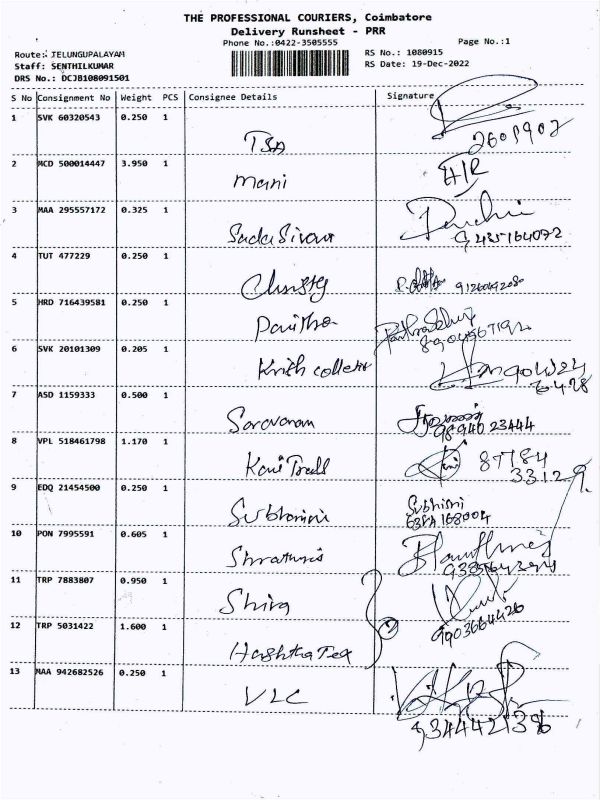 THE PROFESSIONAL COURIERS, Coimbatore
Delivery Runsheet - PRR
Phone No.:0422-3505555
Page No.:1
Route: JELUNGUPALAYAM
RS No.: 1080915
Staff: SENTHILKUMAR
RS Date: 19-Dec-2022
DRS No.: DCJB108091501
S No Consignment No Weight PCS Consignee Details Signature
1 SVK 60320543 0.250 1
TSA
2609902
2 MCD 500014447 3.950 1
mani
3 MAA 295557172 0.325 1
Sada Sivam
9435164092
4 TUT 477229 0.250 1
Christy
5 HRD 716439581 0.250 1
Pavithra
6 SVK 20101309 0.205 1
Krish collection
7 ASD 1159333 0.500 1
Saravanam
98940 23444
8 VPL 518461798 1.170 1
Kani Trads
87784
33129
9 EDQ 21454500 0.250 1
Subhasini
Subhisni
10 PON 7995591 0.605 1
11 TRP 7883807 0.950 1
Shiva
9903664426
12 TRP 5031422 1.600 1
Hashtha Tex
2
13 MAA 942682526 0.250 1
VLC